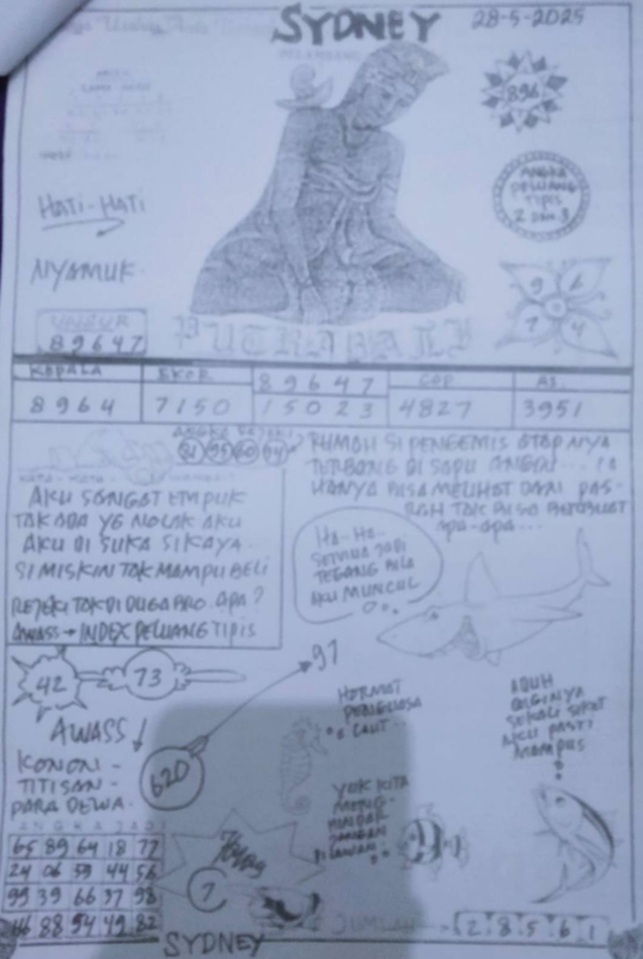 SYDNEY
28-5-2025
896
HATI-HATI
NYAMUK
ANGKA
PELUANG
TIPIS
2 DAN 3
9 6
7 4
89647
PUTRA BALI
KEPALA
EKOR
89647
COP
AS
8964
7150
15023
4827
3951
RUMAH SI PENGEMIS ATAP NYA
TERBANG DI SAPU ANGIN
HANYA BISA MELIHAT DARI PAS-
RAH TAK BISA BERBUAT
APA-APA...
AKU SANGAT EMPUK
TAK ADA YG NOLAK AKU
AKU DI SUKA SIKAYA
SI MISKIN TAK MAMPU BELI
REJEKI TAK DI DUGA BRO. APA?
AWASS → INDEX PELUANG TIPIS
HA-HA-
SEMUA JADI
TEGANG BILA
AKU MUNCUL
42
73
97
AWASS
KONON-
TITISAN-
PARA DEWA
620
HORMAT
PENGUASA
LAUT
ADUH
GIGINYA
SEKALI SIKAT
AKU PASTI
MAMPUS
YUK KITA
MENG-
HINDAR
JANGAN
ANGKA JADI
65 89 64 18 77
24 06 59 44 56
99 39 66 37 98
16 88 94 49 82
7
JUMLAH
2 8 5 6 1
SYDNEY